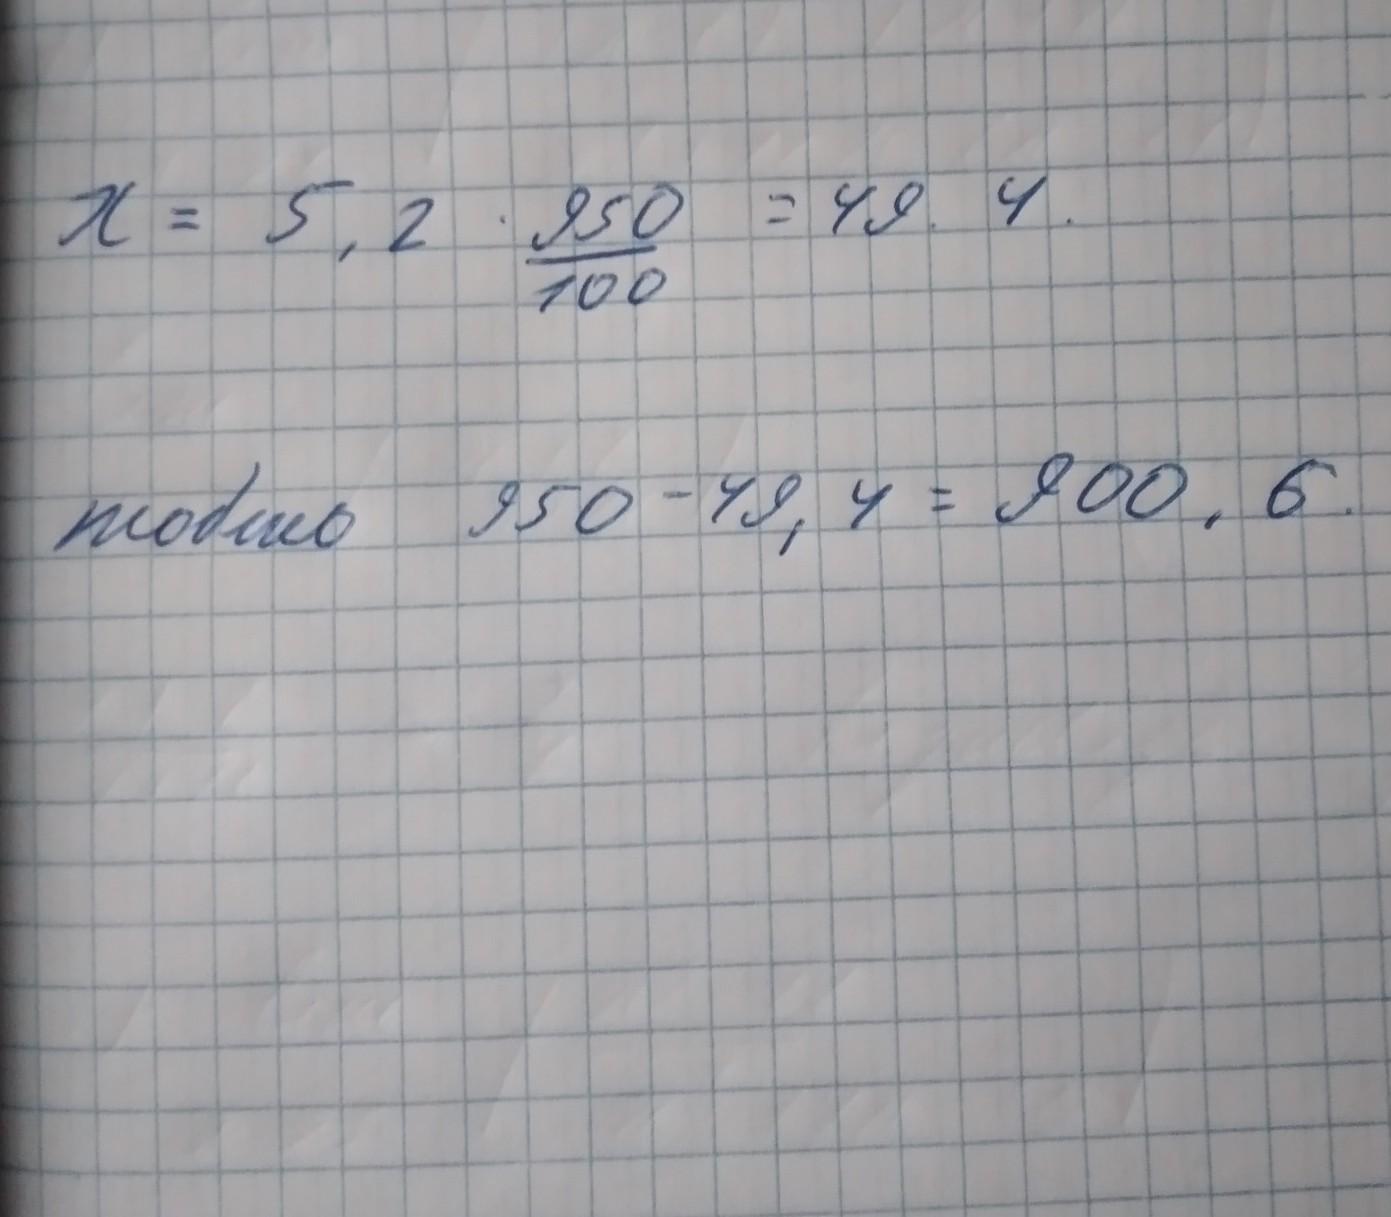 x = 5,2 · 950/100 = 49.4.
тобто 950 - 49,4 = 900,6.